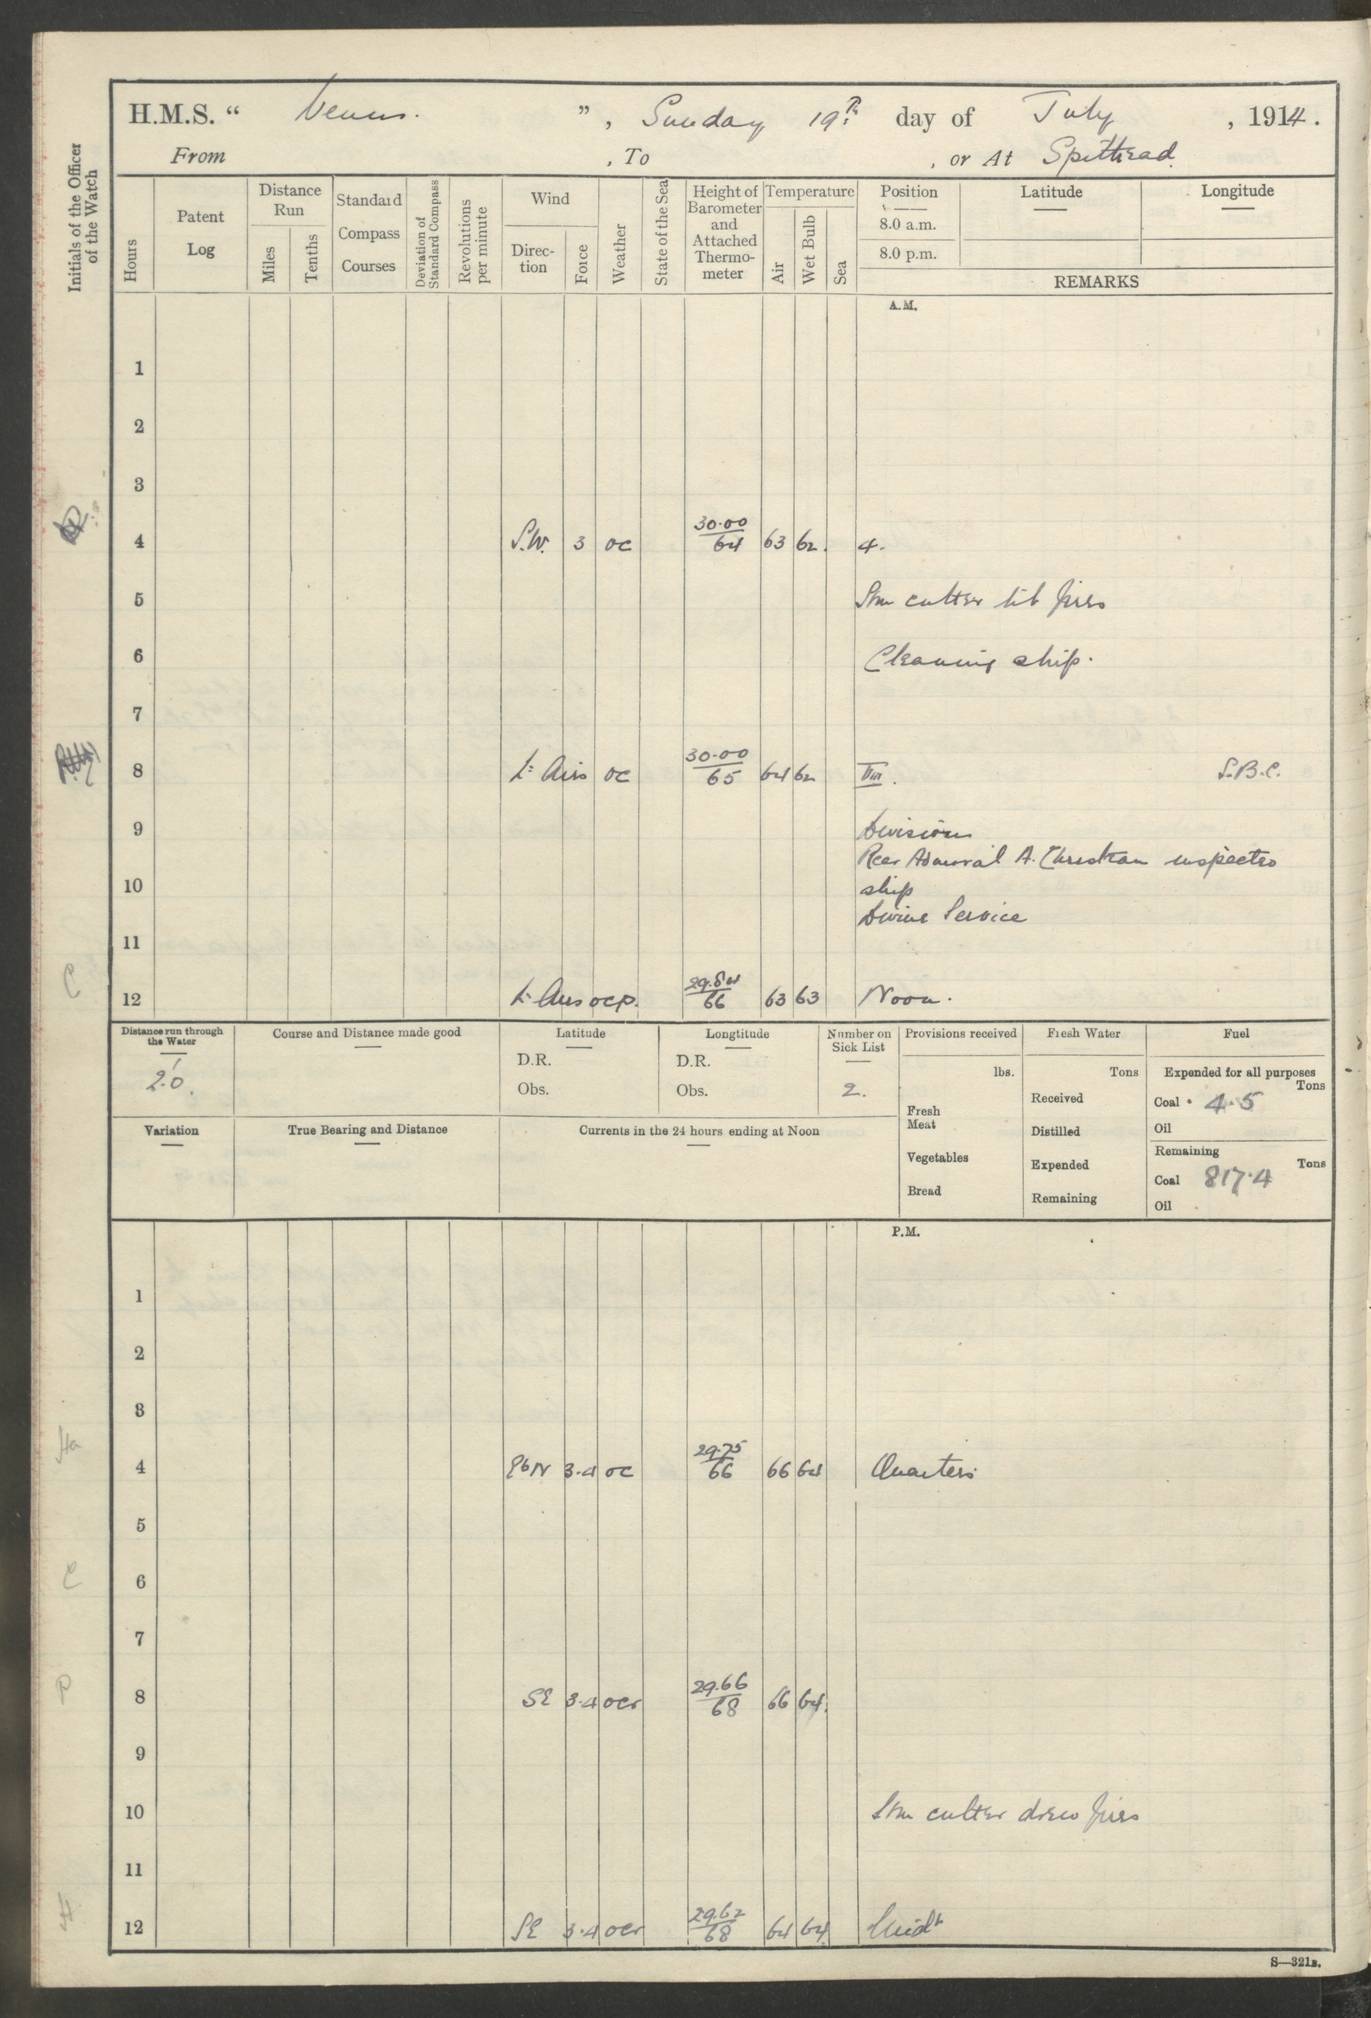 H.M.S. “ Venus. ”, Sunday 19th day of July , 1914.
From , To , or At Spithead.
Initials of the Officer of the Watch
Hours
Patent Log
Distance Run
Miles
Tenths
Standard Compass Courses
Deviation of Standard Compass
Revolutions per minute
Wind
Direc-tion
Force
Weather
State of the Sea
Height of Barometer and Attached Thermo-meter
Temperature
Air
Wet Bulb
Sea
Position
8.0 a.m.
8.0 p.m.
Latitude
Longitude
REMARKS
A.M.
1
2
3
4 S.W. 3 oc 30.00/64 63 62. 4.
5 Stm cutter lit fires
6 Cleaning ship.
7
8 Lt Airs oc 30.00/65 64 62 VIII. S.B.C.
9 Divisions
Rear Admiral A. Christian inspected
10 ship
Divine Service
11
C
12 Lt Airs ocp. 29.84/66 63 63 Noon.
Distance run through the Water
2.0.
Course and Distance made good
Latitude
D.R.
Obs.
Longtitude
D.R.
Obs.
Number on Sick List
2.
Provisions received
lbs.
Fresh Meat
Vegetables
Bread
Fresh Water
Tons
Received
Distilled
Expended
Remaining
Fuel
Expended for all purposes
Tons
Coal 4.5
Oil
Remaining
Tons
Coal 817.4
Oil
Variation
True Bearing and Distance
Currents in the 24 hours ending at Noon
P.M.
1
2
3
4 3.4 oc 29.75/66 66 64 Quarters
5
6
7
P
8 SE 3.4 ocr 29.66/68 66 64.
9
10 Stm cutter drew fires
11
H
12 SE 3.4 ocr 29.62/68 64 64 Midt
S—321B.